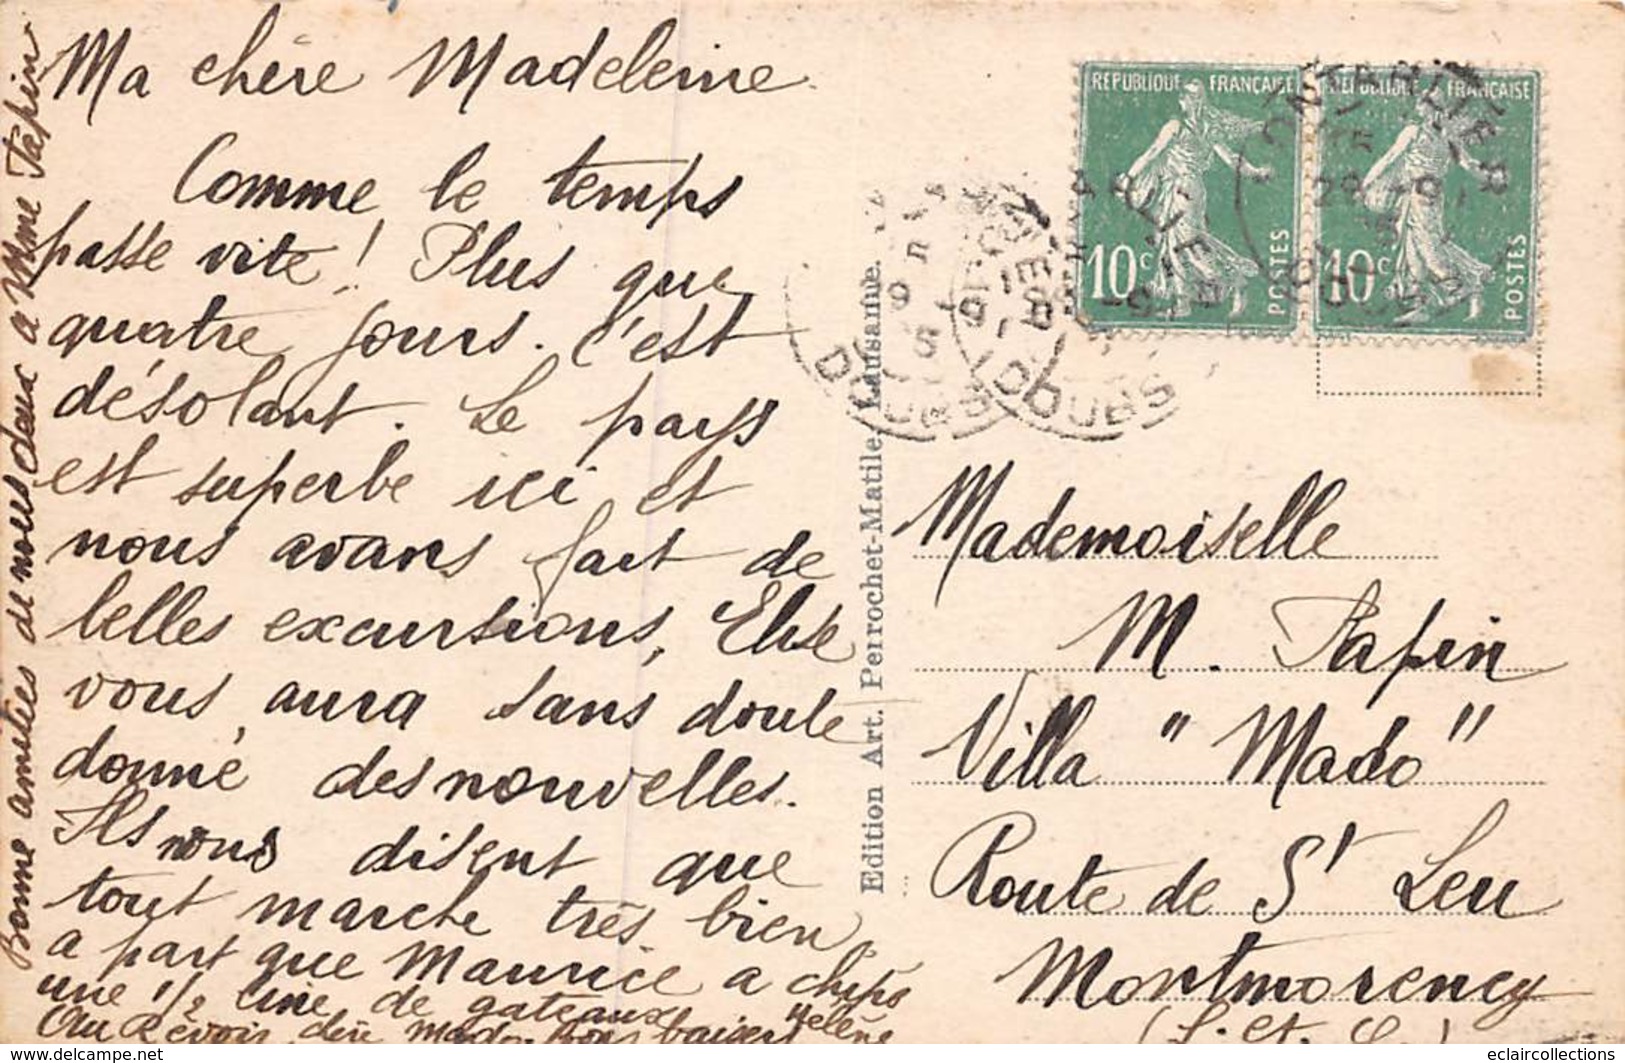 Ma chère Madeleine.
Comme le temps
passe vite! Plus que
quatre jours. C'est
désolant. Le pays
est superbe ici et
nous avons fait de
belles excursions, Elise
vous aura sans doute
donné des nouvelles.
Ils nous disent que
tout marche très bien
a part que Maurice a chipé
une 1/2 de gateaux
Au Revoir baisers Hélène
Bonne amitiés de nous deux a Mme Tapin
Edition Art. Perrochet-Matile, Lausanne.
REPUBLIQUE FRANÇAISE
10c
POSTES
REPUBLIQUE FRANÇAISE
10c
POSTES
PONTARLIER
DOUBS
DOUBS
Mademoiselle
M. Tapin
Villa "Mado"
Route de St Leu
Montmorency
(S. et O.)
eclaircollections